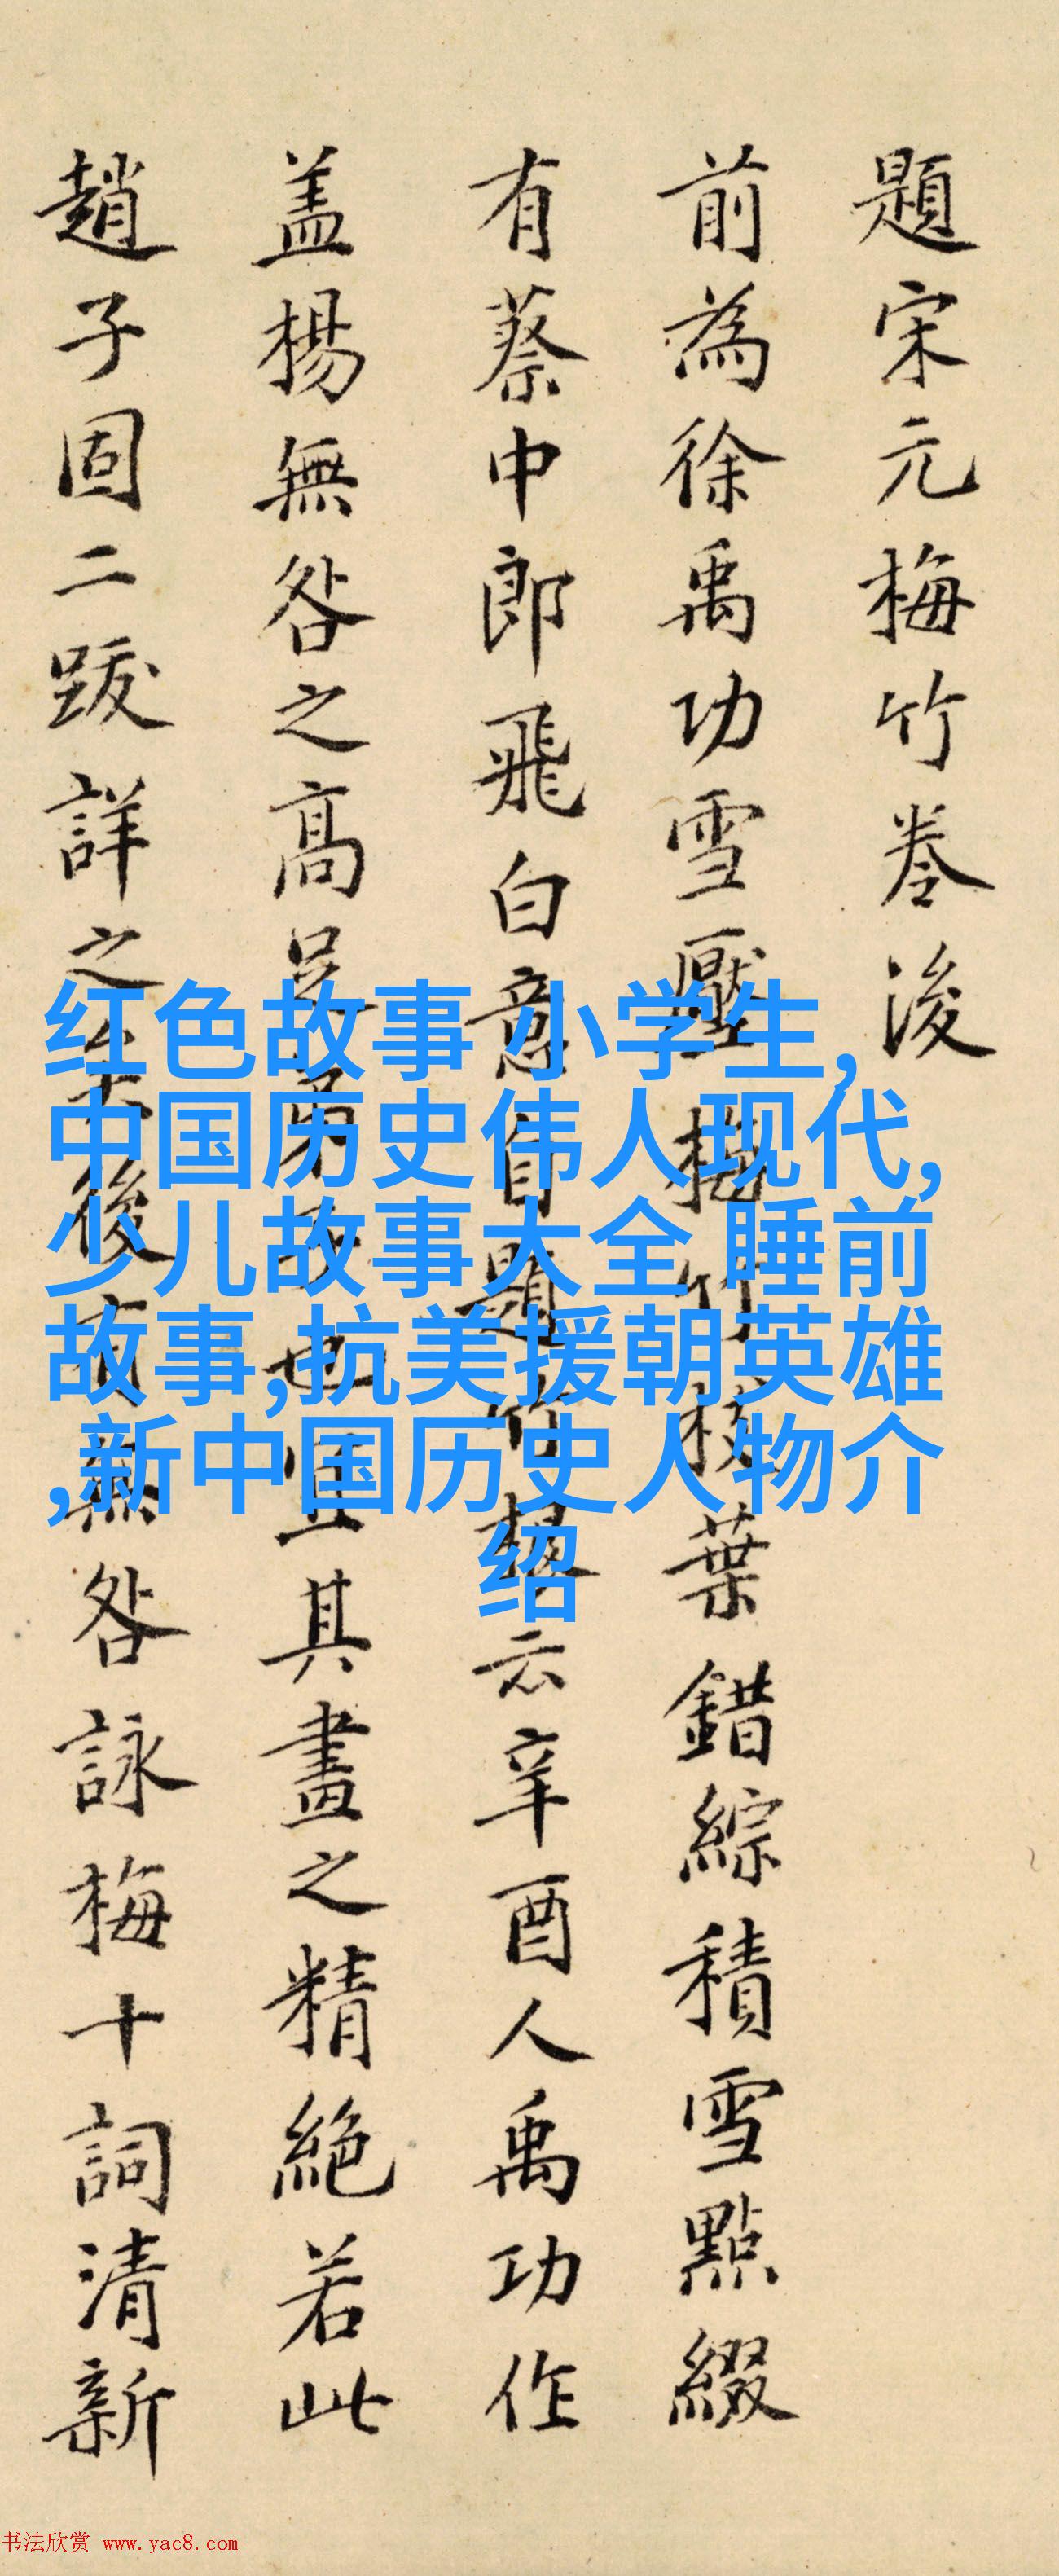 題宋元梅竹卷後
前為徐禹功雪壓梅竹枝葉錯綜積雪點綴
有蔡中郎飛白意自題竹根云辛酉人禹功作
盖楊無咎之高足弟子也宜其畫之精絕若此
趙子固二跋詳之矣後有無咎詠梅十詞清新
红色故事 小学生,
中国历史伟人现代,
少儿故事大全 睡前
故事,抗美援朝英雄
,新中国历史人物介
绍
书法欣赏 www.yac8.com